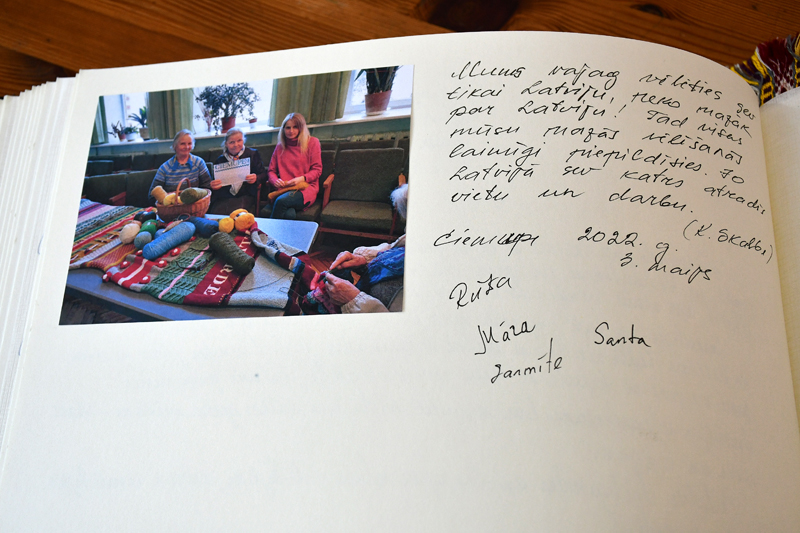 Mums vajag vēlēties sev
tikai Latviju, neko mazāk
par Latviju! Tad visas
mūsu mazās vēlēšanās
laimīgi piepildīsies. Jo
Latvijā sev katrs atradīs
vietu un darbu.
(K. Skalbe)
Ciemupe 2022. g.
3. maijs
Rūta
Māra
Santa
Sarmīte